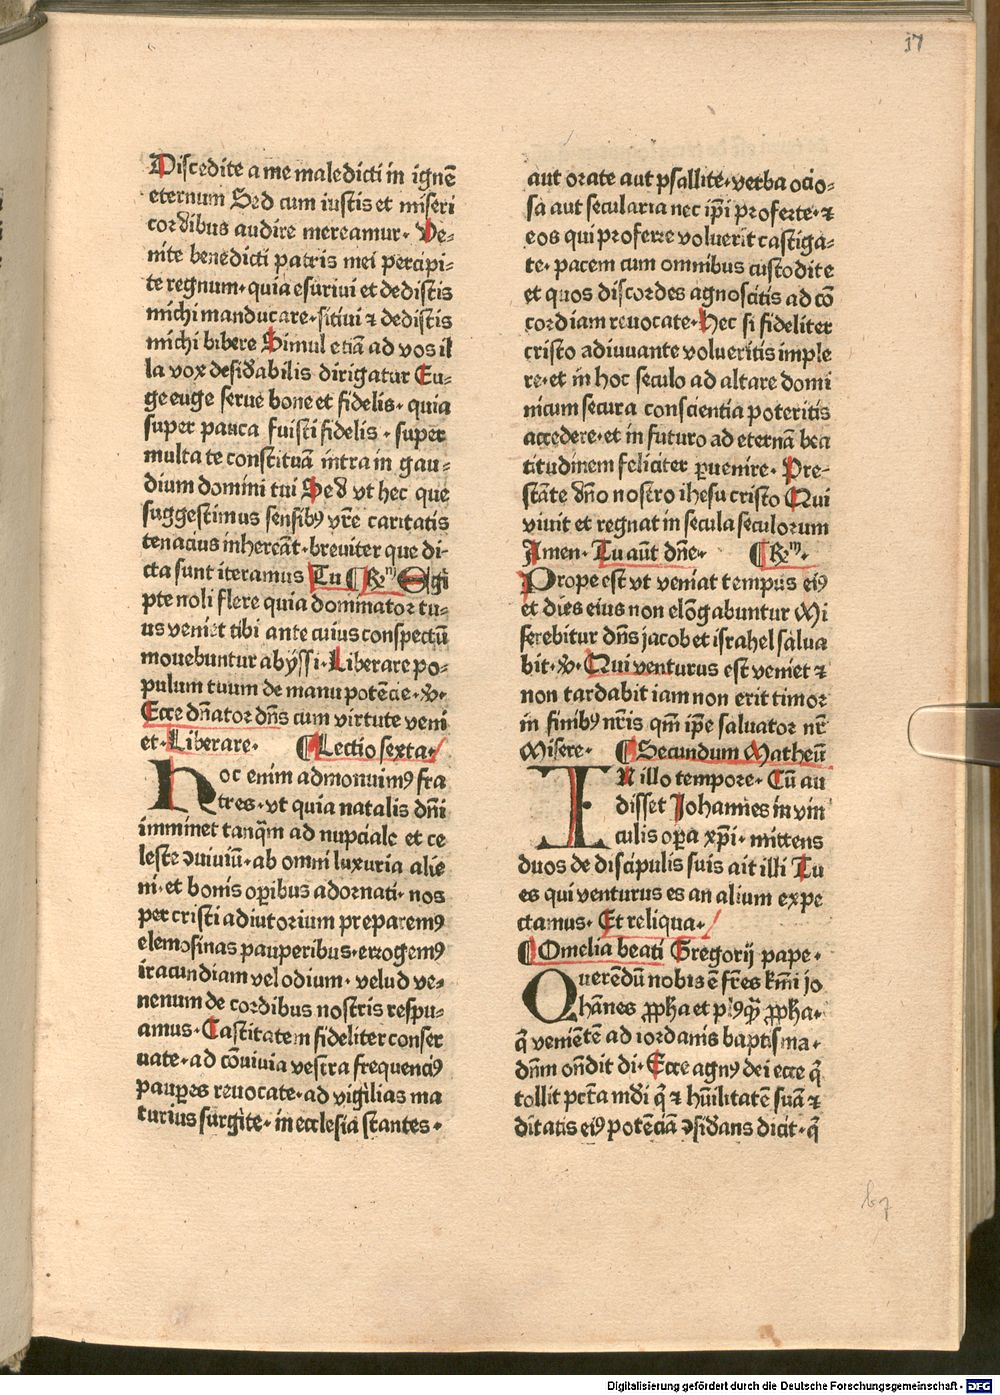 17
Discedite a me maledicti in ignē
eternum Sed cum iustis et miseri
cordibus audire mereamur· Ve⸗
nite benedicti patris mei percipi⸗
te regnum· quia esuriui et dedistis
michi manducare· sitiui ⁊ dedistis
michi bibere Simul etiā ad vos il
la vox desid'abilis dirigatur Eu⸗
ge euge serue bone et fidelis· quia
super pauca fuisti fidelis · super
multa te constituā intra in gau⸗
dium domini tui Sed vt hec que
suggestimus sensibꝰ vr̄e caritatis
tenacius inhereāt· breuiter que di⸗
cta sunt iteramus Tu ¶ R̄m Egi
pte noli flere quia dominator tu⸗
us veniet tibi ante cuius conspectū
mouebuntur abyssi· Liberare po⸗
pulum tuum de manu potēcie· V·
Ecce dn̄ator dn̄s cum virtute veni
et· Liberare· ¶ Lectio sexta·
Hoc enim admonuimꝰ fra
tres· vt quia natalis dn̄i
imminet tanq̄m ad nupciale et ce
leste ꝯuiuiū· ab omni luxuria alie
ni· et bonis oꝑibus adornati· nos
per cristi adiutorium preparemꝰ
elemosinas pauperibus· errogemꝰ
iracundiam vel odium· velud ve⸗
nenum de cordibus nostris respu⸗
amus· Castitatem fideliter conser
uate· ad cōuiuia vestra frequenciꝰ
pauꝑes reuocate· ad vigilias ma
turius surgite· in ecclesia stantes·
aut orate aut psallite· verba ocio⸗
sa aut secularia nec ip̄i proferte· ⁊
eos qui proferre voluerit castiga⸗
te· pacem cum omnibus custodite
et quos discordes agnoscitis ad cō
cordiam reuocate· Hec si fideliter
cristo adiuuante volueritis imple
re· et in hoc seculo ad altare domi
nicum secura conscientia poteritis
accedere· et in futuro ad eternā bea
titudinem feliciter ꝑuenire· Pre⸗
stāte dn̄o nostro ihesu cristo Qui
viuit et regnat in secula seculorum
Amen· Tu aūt dn̄e· ¶ R̄m·
Prope est vt veniat tempus eiꝰ
et dies eius non elōgabuntur Mi
serebitur dn̄s jacob et israhel salua
bit· V· Qui venturus est veniet ⁊
non tardabit iam non erit timor
in finibꝰ nr̄is qm̄ ip̄e saluator nr̄
Misere· ¶ Secundum Matheū
IN illo tempore· Cū au
disset Johannes in vin
culis oꝑa xp̄i· mittens
duos de discipulis suis ait illi Tu
es qui venturus es an alium expe
ctamus· Et reliqua·
¶ Omelia beati Gregorij pape·
Querēdū nobis ē fr̄es km̄i jo
hānes ꝓpha et plꝰq̄ ꝓpha·
q̄ veniētē ad iordanis baptisma·
dn̄m ondit di· Ecce agnꝰ dei ecce q̄
tollit pctā mdi q̄ ⁊ hūilitatē suā ⁊
ditatis eiꝰ potēciā ꝯsid'ans dicit· q̄
b7
Digitalisierung gefördert durch die Deutsche Forschungsgemeinschaft - DFG